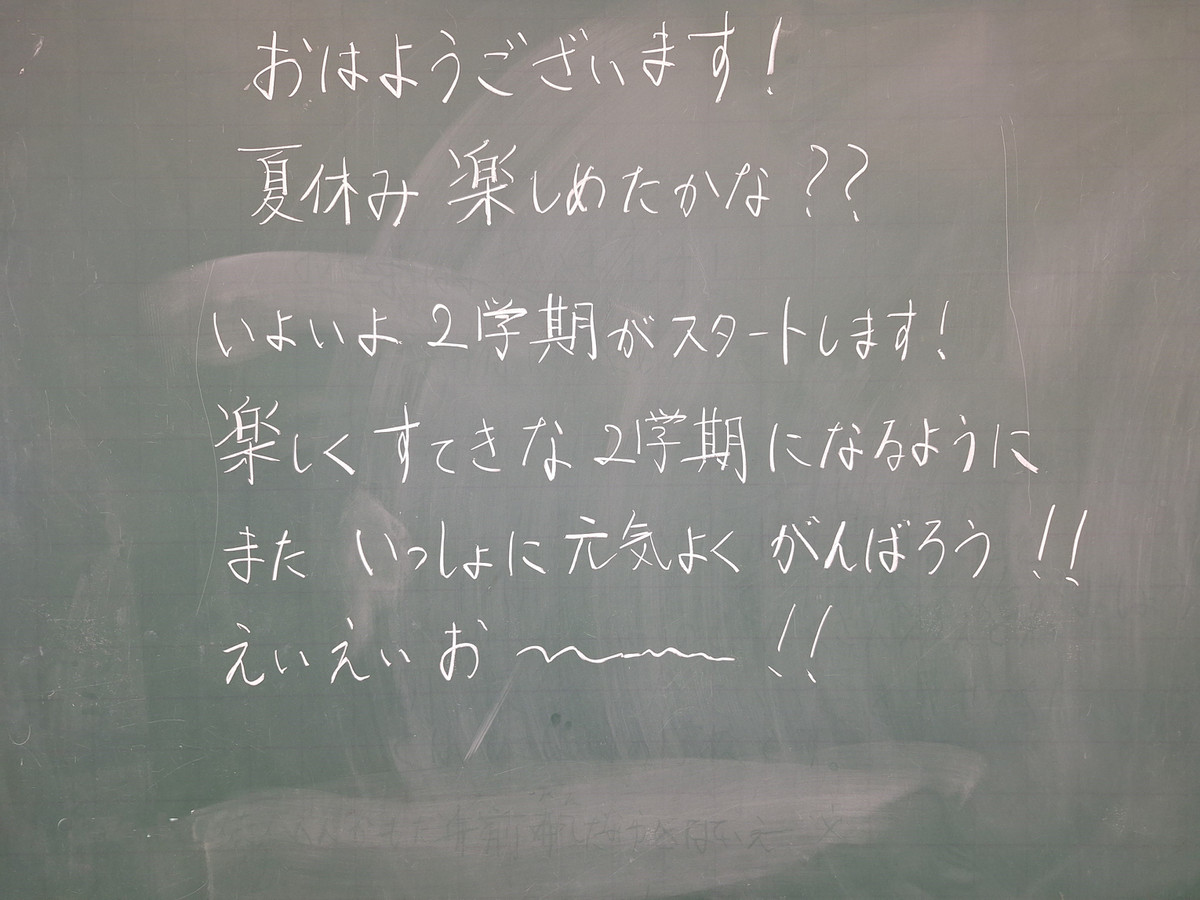 おはようございます!
夏休み 楽しめたかな??
いよいよ 2学期がスタートします!
楽しく すてきな 2学期になるように
また いっしょに 元気よく がんばろう!!
えいえいお〜〜〜!!